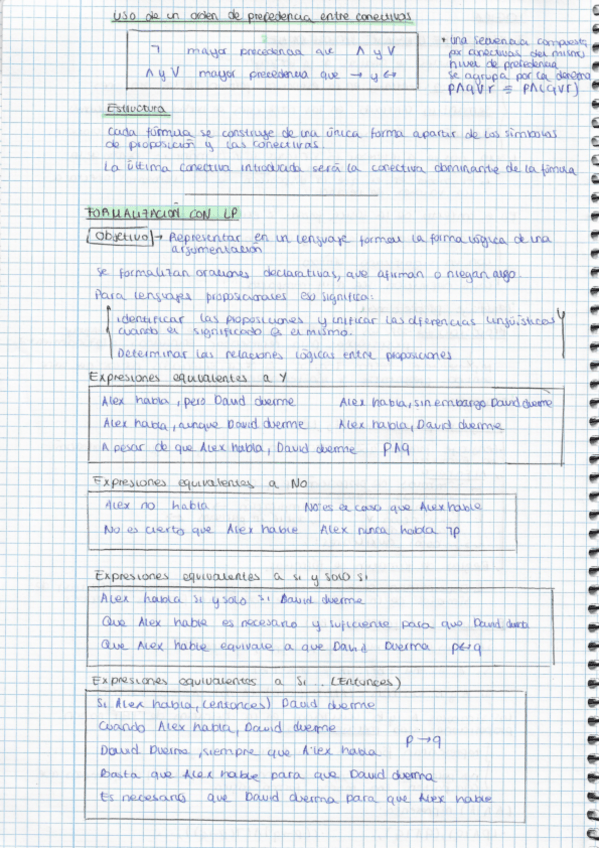 USO de un orden de precedencia entre conectivas
¬ mayor precedencia que ∧ y ∨
∧ y ∨ mayor precedencia que → y ↔
• una secuencia compuesta
por conectivas del mismo
nivel de precedencia
se agrupa por la derecha
p∧q∨r ≡ p∧(q∨r)
Estructura
Cada fórmula se construye de una única forma a partir de los símbolos
de proposición y las conectivas
La última conectiva introducida será la conectiva dominante de la fórmula
FORMALIZACIÓN CON LP
Objetivo → Representar en un lenguaje formal la forma lógica de una
argumentación
Se formalizan oraciones declarativas, que afirman o niegan algo.
Para lenguajes proposicionales eso significa:
Identificar las proposiciones y unificar las diferencias lingüísticas
cuando el significado es el mismo.
Determinar las relaciones lógicas entre proposiciones
Expresiones equivalentes a Y
Alex habla, pero David duerme Alex habla, sin embargo David duerme
Alex habla, aunque David duerme Alex habla, David duerme
A pesar de que Alex habla, David duerme p∧q
Expresiones equivalentes a No
Alex no habla No es el caso que Alex hable
No es cierto que Alex hable Alex nunca habla ¬p
Expresiones equivalentes a si y solo si
Alex habla si y solo si David duerme
Que Alex hable es necesario y suficiente para que David duerma
Que Alex hable equivale a que David Duerma p↔q
Expresiones equivalentes a Si ... (Entonces)
Si Alex habla, (entonces) David duerme
Cuando Alex habla, David duerme
p→q
David Duerme, siempre que Alex habla
Basta que Alex hable para que David duerma
Es necesario que David duerma para que Alex hable